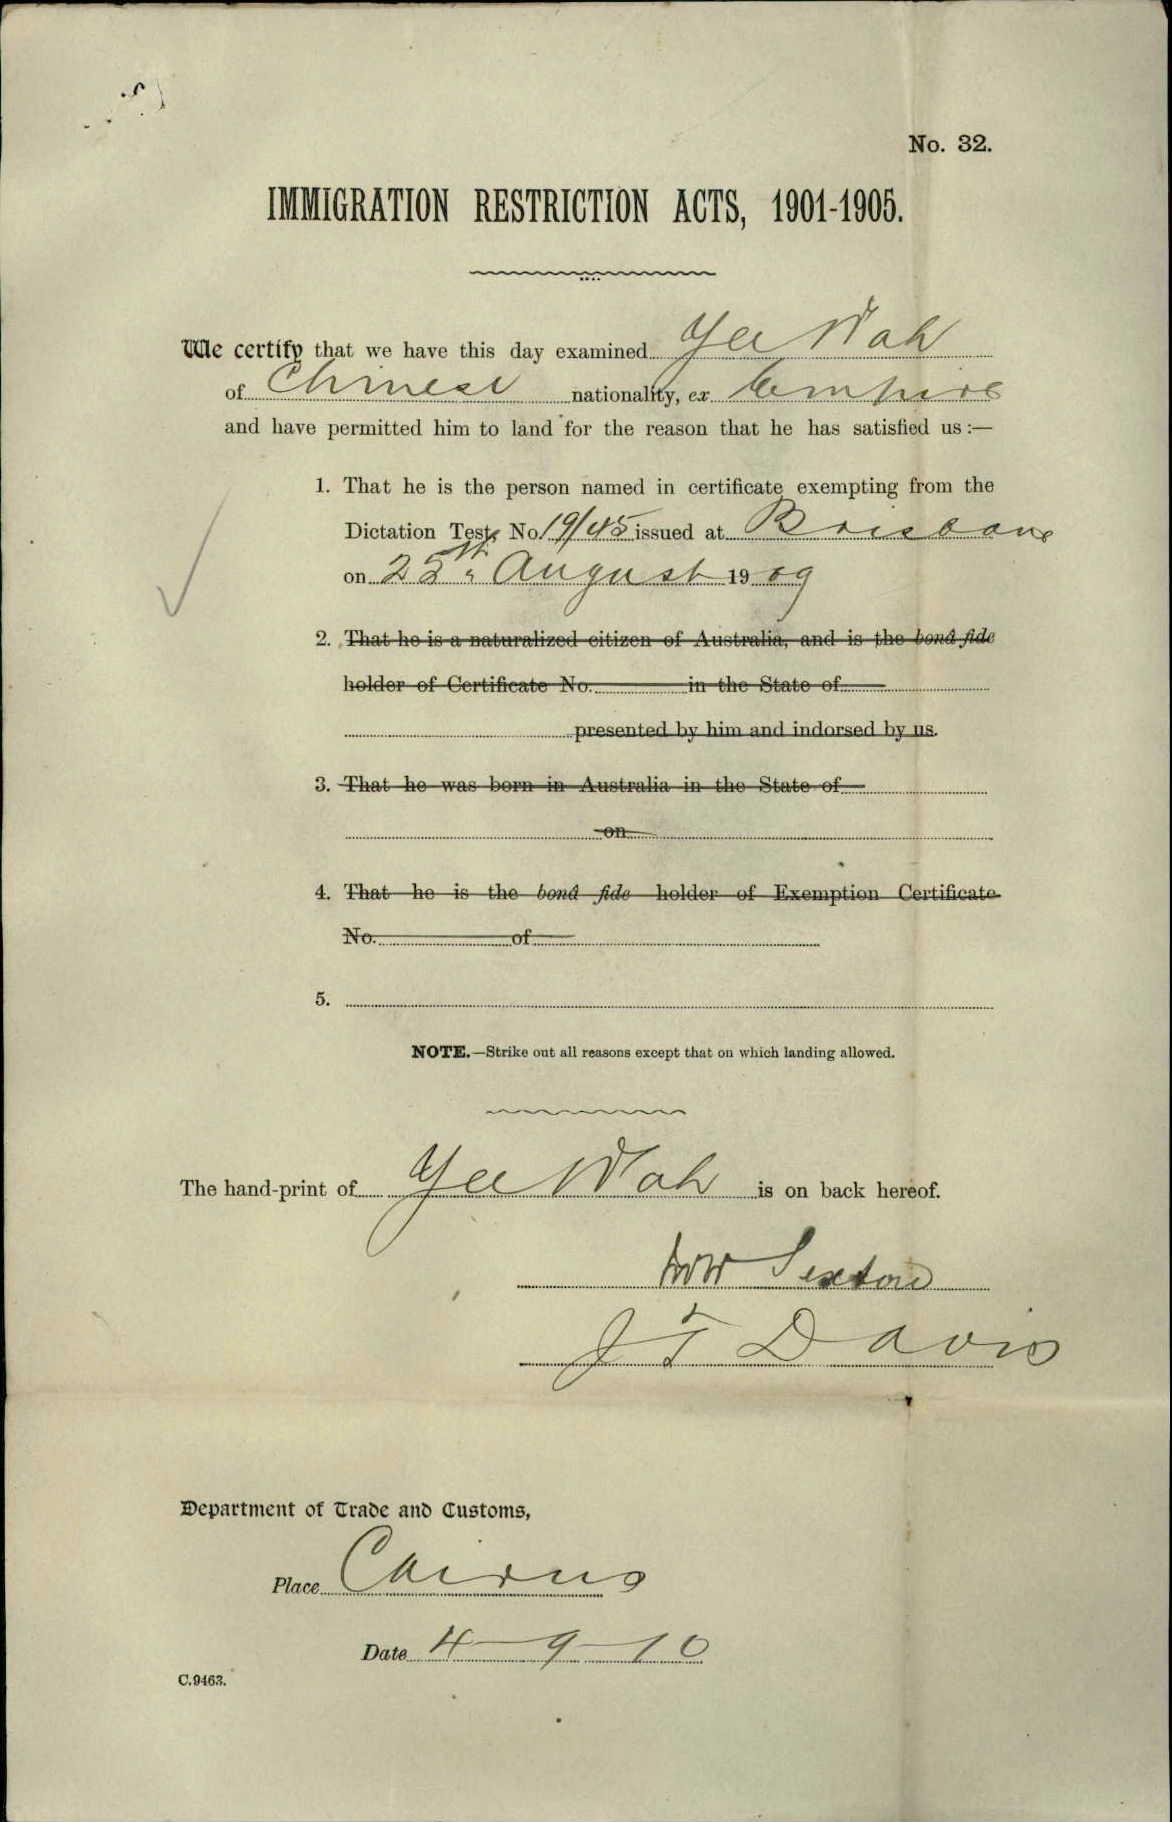 No. 32.
IMMIGRATION RESTRICTION ACTS, 1901-1905.
We certify that we have this day examined Yee Wah
of Chinese nationality, ex Empire
and have permitted him to land for the reason that he has satisfied us :—
1. That he is the person named in certificate exempting from the
Dictation Test, No. 19/45 issued at Brisbane
on 25th August 1909
2. That he is a naturalized citizen of Australia, and is the bonâ fide
holder of Certificate No. in the State of
presented by him and indorsed by us.
3. That he was born in Australia in the State of
on
4. That he is the bonâ fide holder of Exemption Certificate
No. of
5.
NOTE.—Strike out all reasons except that on which landing allowed.
The hand-print of Yee Wah is on back hereof.
Sexton
J T Davis
Department of Trade and Customs,
Place Cairns
Date 4-9-10
C.9463.